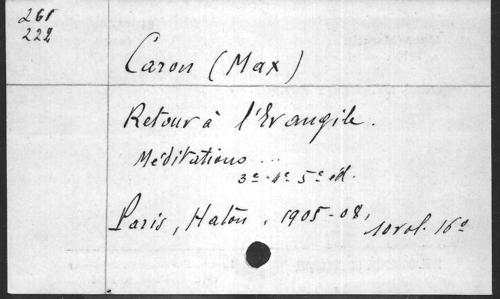 261
222
Caron (Max)
Retour à l'Evangile.
Méditations ...
3e-4e 5e éd.
Paris, Haton, 1905-08,
10 vol. 16º